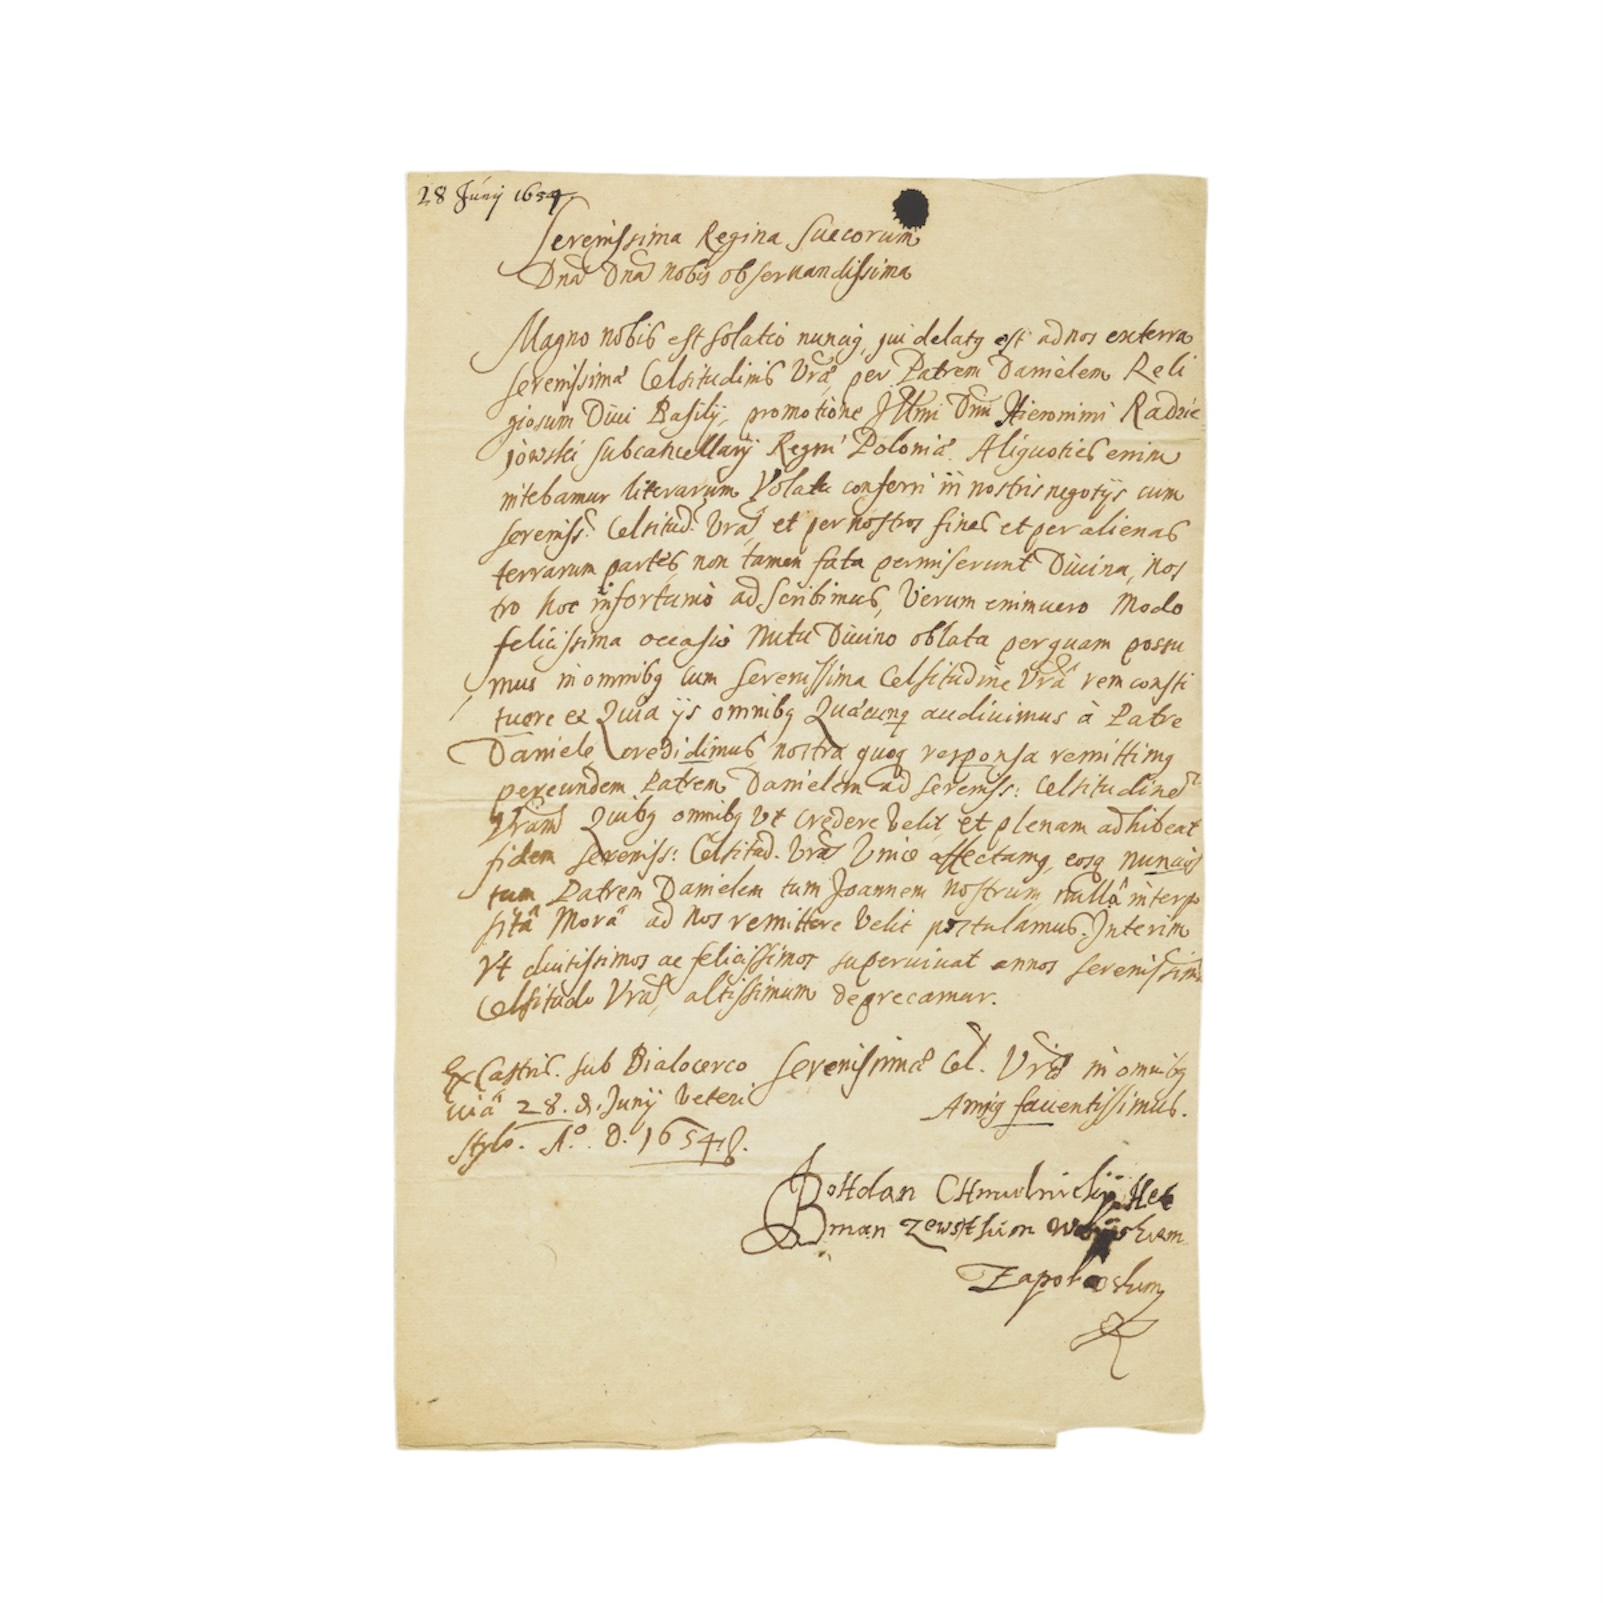 28 Junij 1654
Serenissima Regina Suecorum
Dna Dna nobis obseruandissima
Magno nobis est solatio nuncig, qui delatg est ad nos ex terra
serenissimæ Celsitudinis Vræ, per Patrem Danielem Reli
giosum Diui Basilij, promotione Illmi Dni Hieronimi Radzie
jowski subcancellarij Regni Poloniæ. Aliquoties enim
nitebamur literarum Volatu conferri in nostris negotijs cum
sereniss. Celsitud. Vra, et per nostros fines et per alienas
terrarum partes, non tamen fata permiserunt Diuina, nos
tro hoc infortunio adscribimus, Verum enimuero Modo
felicissima occasio Nutu Diuino oblata perquam possu
mus in omnibg cum serenissima Celsitudine Vra rem consti
tuere et Quia ijs omnibg Quæcunq audiuimus à Patre
Daniele credidimus, nostra quoq responsa remittimg
per eundem Patrem Danielem ad sereniss: Celsitudine
Vram Quibg omnibg Vt credere Velit, et plenam adhibeat
fidem sereniss: Celsitud. Vra Vnice affectamg, eosq nuncios
tum Patrem Danielem tum Joannem nostrum nullâ interpo
sitâ Morâ ad Nos remittere Velit postulamus. Interim
Vt diutissimos ac felicissimos superuiuat annos serenissima
Celsitudo Vra, altissimum deprecamur.
Ex Castris. sub Bialocerco
uiâ 28. d. Junij Veteri
stylo. A.o D. 1654.
Serenissimæ Cel. Vræ in omnibg
Amicg fauentissimus.
Bohdan Chmielnickij Het
man Zewsithim Woijskiem
Zaporoskim